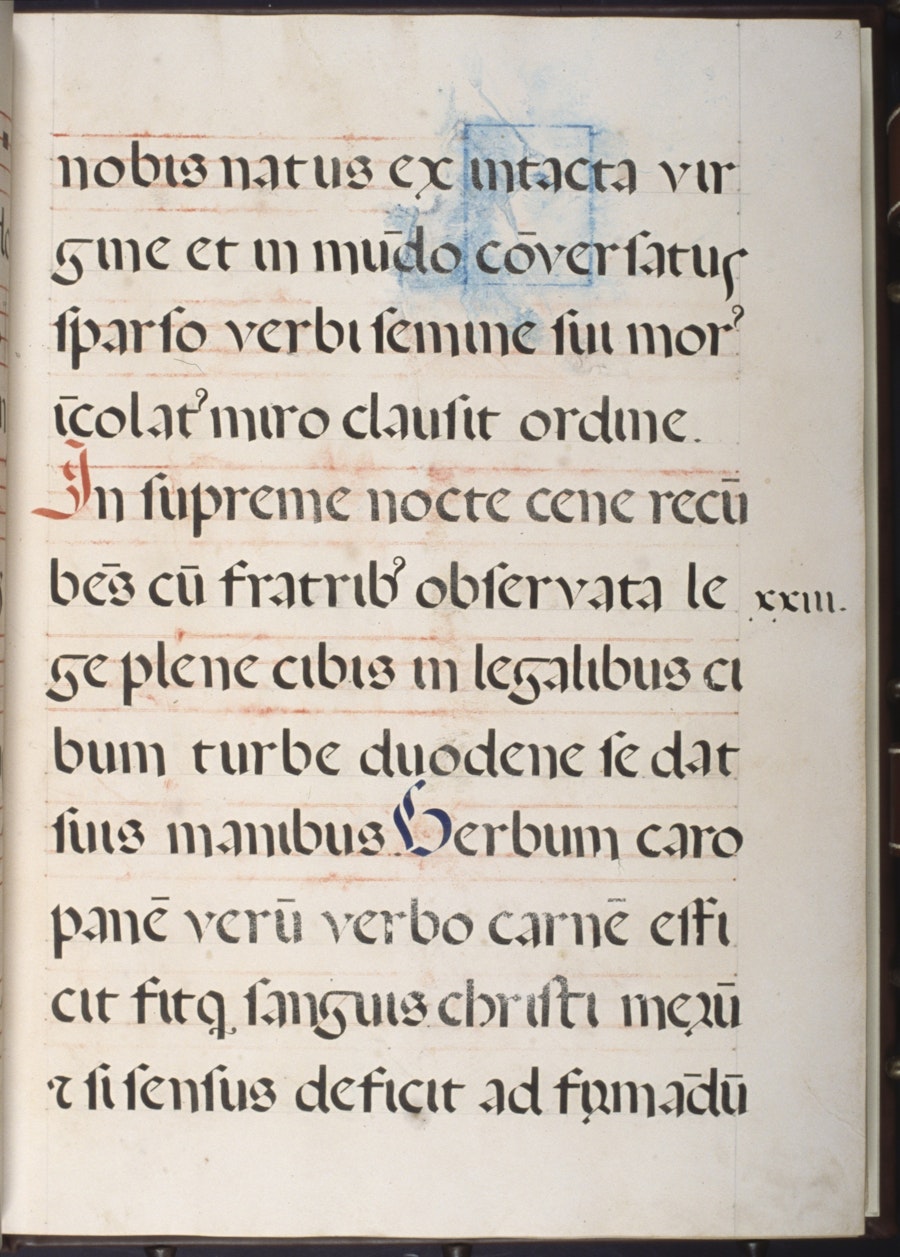 nobis natus ex intacta vir
gine et in mūdo cōversatus
sparso verbi semine sui morꝰ
īcolatꝰ miro clausit ordine.
In supreme nocte cene recū
bēs cū fratribꝰ observata le
xxiii.
ge plene cibis in legalibus ci
bum turbe duodene se dat
suis manibus. Verbum caro
panē verū verbo carnē effi
cit fitq sanguis christi meꝛū
⁊ si sensus deficit ad fiꝛmādū